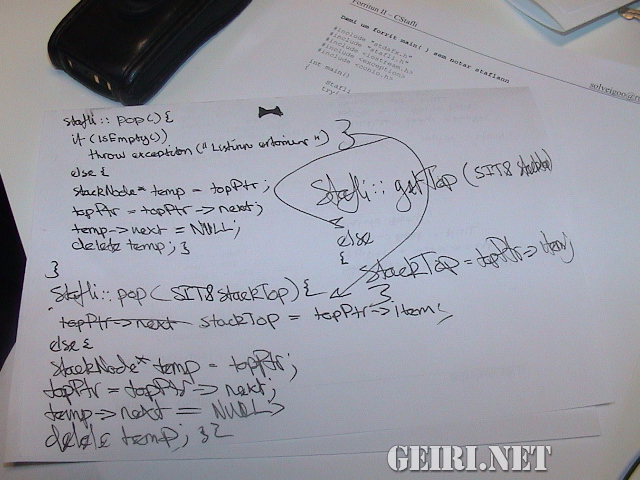 Forritun II - CStafli
Dæmi um forrit main( ) sem notar staflann
#include "stdafx.h"
#include "stafli.h"
#include <iostream.h>
#include <exception>
#include <conio.h>
int main()
{
Stafli
try{
solveigoo@
stafli::pop(){
if(isEmpty())
throw exception("Listinn er tómur")
}
else {
stackNode* temp = topPtr;
topPtr = topPtr->next;
temp->next = NULL;
delete temp; }
}
Stafli::getTop(SIT8 stackTop)
{
else
{
stackTop = topPtr->item;
}
Stafli::pop(SIT8 stackTop){
topPtr->next stackTop = topPtr->item;
else {
stackNode* temp = topPtr;
topPtr = topPtr->next;
temp->next = NULL;
delete temp; }
GEIRI.NET